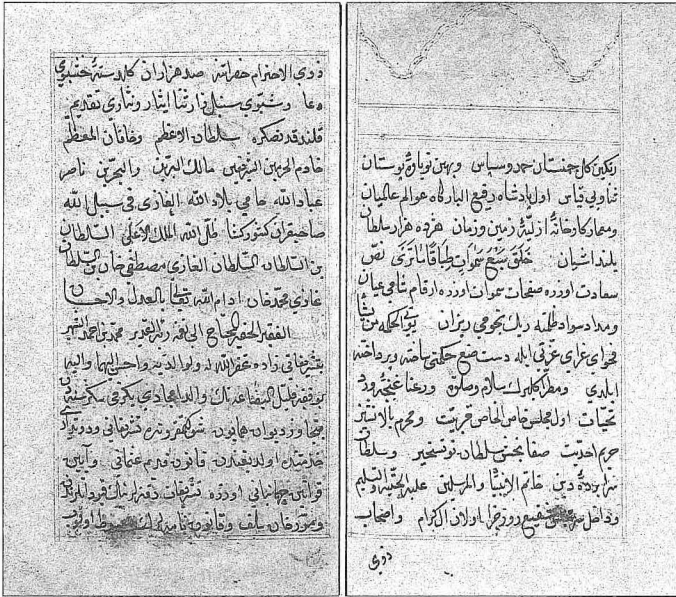 رنكين كل چمنستان حمد وسپاس وبهين نوباوهٔ بوستان
ثناوبى قياس اول پادشاه رفيع البارگاه عوالم عالميان
ومعمار كارخانهٔ ازليهٔ زمين وزمان هروه هزار سلطان
بلند اشيان خَلَقَ سَبْعَ سَمٰوَاتٍ طِبَاقًا مَاتَرَى نص
سعادت اوزره صفحات سموات اوزره ارقام شامى عيان
ومداد سواد ظلمته ريك نجومى ريزان يؤتى الحكمه من يشأ
فحواى غراى عزتى ايله دست صنع حكمتى ساخته وپرداخته
ايلدى ومطرا كلبرك سلام وصلوة ورعنا غنچه ورد
تحيات اول مجلس خاص الخاص قربت ومحرم بالانشين
حريم احديت صفا بخش سلطان نوتسخير وسلطان
سراپردهٔ دين خاتم الانبيا والمرسلين عليه التحيه والتسليم
وداخل شفيع روز جزا اولان اكرام واصحاب
ذوى
ذوى الاحترام حضراتنه صد هزاران كلدسته خشبوى
دعا وشبوى سنبل زار ثنا ايثار ونثارى تقديم
قلندقدنصكره سلطان الاعظم وخاقان المعظم
خادم الحرمين الشريفين مالك البرين والبحرين ناصر
عباد الله حامى بلاد الله الغازى فى سبيل الله
صاحبقران كشوركشا ظل الله الملك الاعلى السلطان
بن السلطان السلطان الغازى مصطفى خان بن السلطان
غازى محمد خان ادام الله تعالى بالعدل والاحسان
الفقير الحقير المحتاج الى رحمة ربه القدير محمد بن احمد الشهير
بتشريفاتى زاده عفى الله له ولوالديه واحسن اليهما واليه
بو فقير قليل البضاعه نك والد ماجدى يكرمى سكز سنه دن
متجاوز ديوان همايون شوكتمقرونده تشريفاتى ودوندار
خدمتنده اولديغندن قانون قديم عثمانى وآيين
قوانين جهانبانى اوزره تشريفات دفترلرينك قرواىلرندن
ومورخان سلف وقانون نامه لردن اولوب